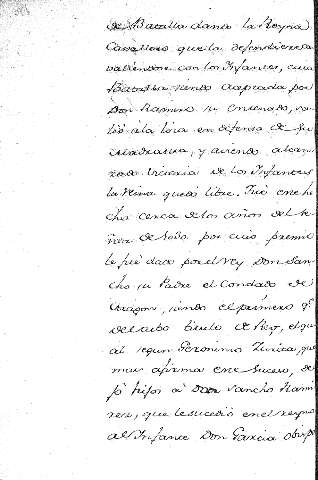 de Batalla dando la Reyna
Cavallero que la defendiese
valiendose con los Infantes, cuia
Batalla siendo aceptada por
Don Ramiro su entenado, sa-
lió á la lixa en defensa de su
Madrastra, y aviendo alcan-
zado victoria de los Infantes
la Reina quedó libre. Fué este he
cho cerca de los años del Se-
ñor de por cuio premio
le fué dado por el Rey Don San-
cho su Padre el Condado de
Aragon, siendo el primero q.
de el tubo titulo de Rey, el qu
al segun Geronimo Zurita, que
mas afirma este suceso, de
jó hijos á Don Sancho Rami
rez, que le sucedió en el reyno
al Infante Don Garcia obispo